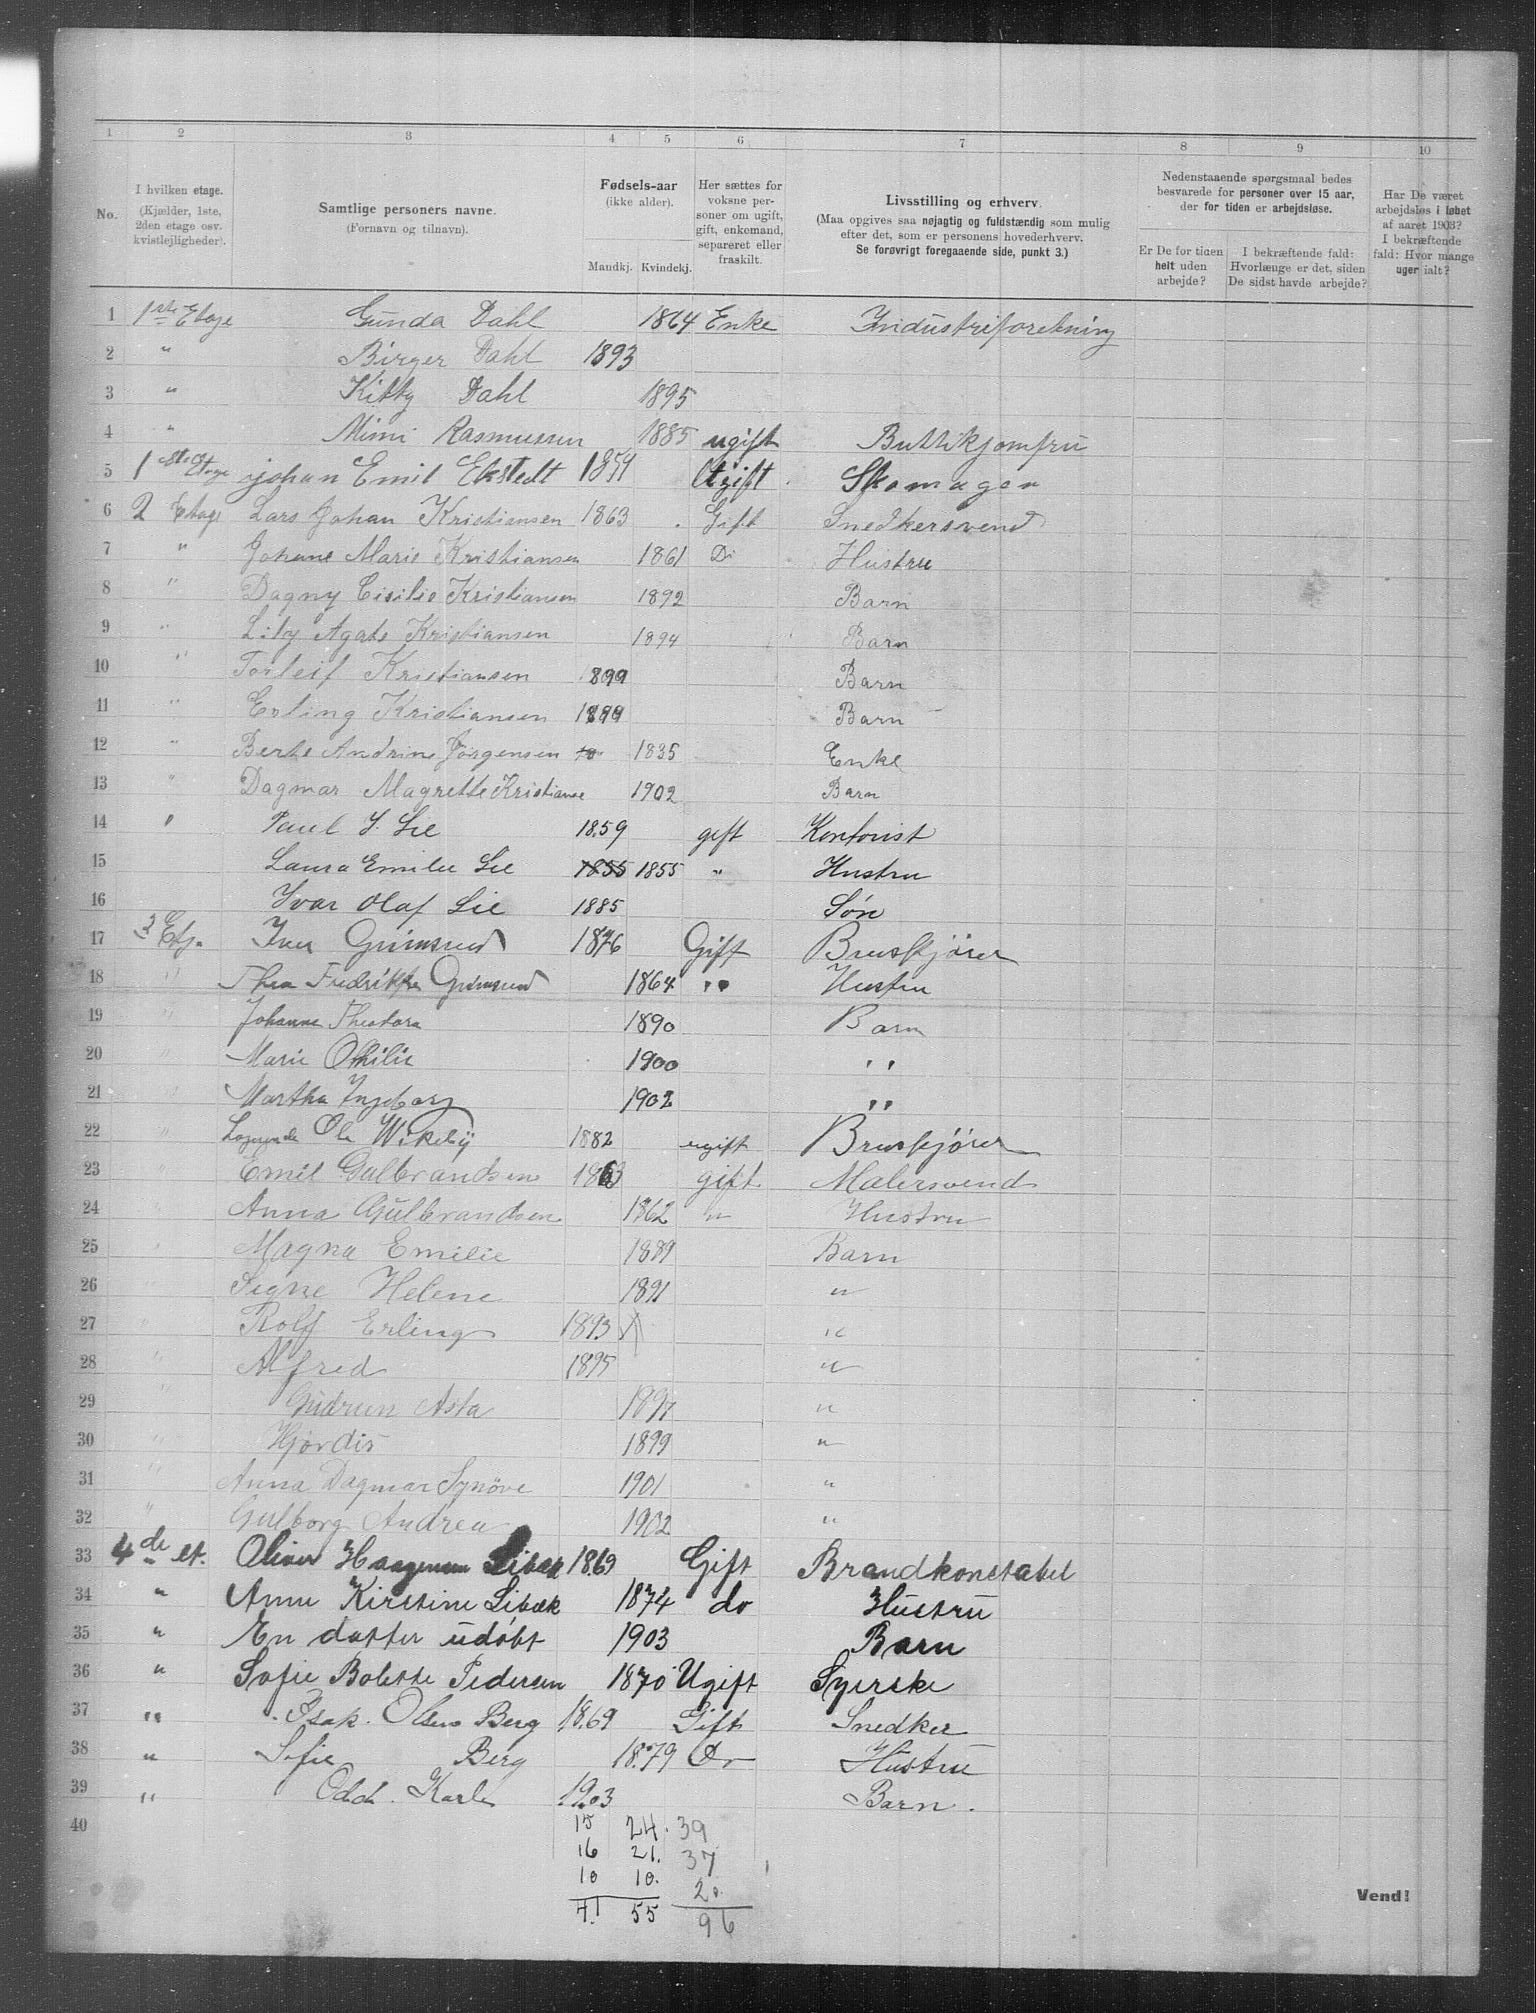 1 2 3 4 5 6 7 8 9 10
No.
I hvilken etage.
(Kjælder, 1ste,
2den etage osv.
kvistlejligheder).
Samtlige personers navne.
(Fornavn og tilnavn).
Fødsels-aar
(ikke alder).
Mandkj. Kvindekj.
Her sættes for
voksne per-
soner om ugift,
gift, enkemand,
separeret eller
fraskilt.
Livsstilling og erhverv.
(Maa opgives saa nøjagtig og fuldstændig som mulig
efter det, som er personens hovederhverv.
Se forøvrigt foregaaende side, punkt 3.)
Nedenstaaende spørgsmaal bedes
besvarede for personer over 15 aar,
der for tiden er arbejdsløse.
Er De for tiden
helt uden
arbejde?
I bekræftende fald:
Hvorlænge er det, siden
De sidst havde arbejde?
Har De været
arbejdsløs i løbet
af aaret 1903?
I bekræftende
fald: Hvor mange
uger ialt?
1 1ste Etage Gunda Dahl 1864 Enke Industriforretning
2 " Birger Dahl 1893
3 " Kitty Dahl 1895
4 " Mimi Rasmussen 1885 ugift Buttikjomfru
5 1ste Etage Johan Emil Ekstedt 1854 Ugift Skomager
6 2 Etage Lars Johan Kristiansen 1863 Gift Snedkersvend
7 " Johane Marie Kristiansen 1861 Do Hustru
8 " Dagny Cisilie Kristiansen 1892 Barn
9 " Lily Agate Kristiansen 1894 Barn
10 " Torleif Kristiansen 1899 Barn
11 " Erling Kristiansen 1899 Barn
12 " Berte Andrine Jørgensen 1835 Enke
13 " Dagmar Magrette Kristianse 1902 Barn
14 " Paul S. Lie 1859 gift Kontorist
15 Laura Emilie Lie 1855 1855 " Hustru
16 Ivar Olaf Lie 1885 Søn
17 3 Etg. Iver Grimsrud 1876 Gift Bruskjører
18 " Thea Fredrikke Grimsrud 1864 " Hustru
19 " Johanne Theodora 1890 Barn
20 " Marie Othilie 1900 "
21 " Martha Ingeborg 1902 "
22 " Logerende Ole Wikeby 1882 ugift Bruskjører
23 " Emil Gulbrandsen 1863 gift Malersvend
24 " Anna Gulbrandsen 1862 " Hustru
25 " Magna Emilie 1889 Barn
26 " Signe Helene 1891 "
27 " Rolf Erling 1893 "
28 " Alfred 1895 "
29 " Gudrun Asta 1897 "
30 " Hjørdis 1899 "
31 " Anna Dagmar Synøve 1901 "
32 " Gulborg Andrea 1902 "
33 4de et. Oliver Haagensen Libæk 1869 Gift Brandkonstabel
34 " Anne Kirstine Libæk 1874 do Hustru
35 " En datter udøbt 1903 Barn
36 " Sofie Bolette Pedersen 1870 Ugift Syerske
37 " Isak. Olsen Berg 1869 Gift Snedker
38 " Sofie Berg 1879 Do Hustru
39 " Odd. Karl 1903 Barn.
40 15 24. 39
16 21. 37
10 10. 20
41 55 96
Vend!